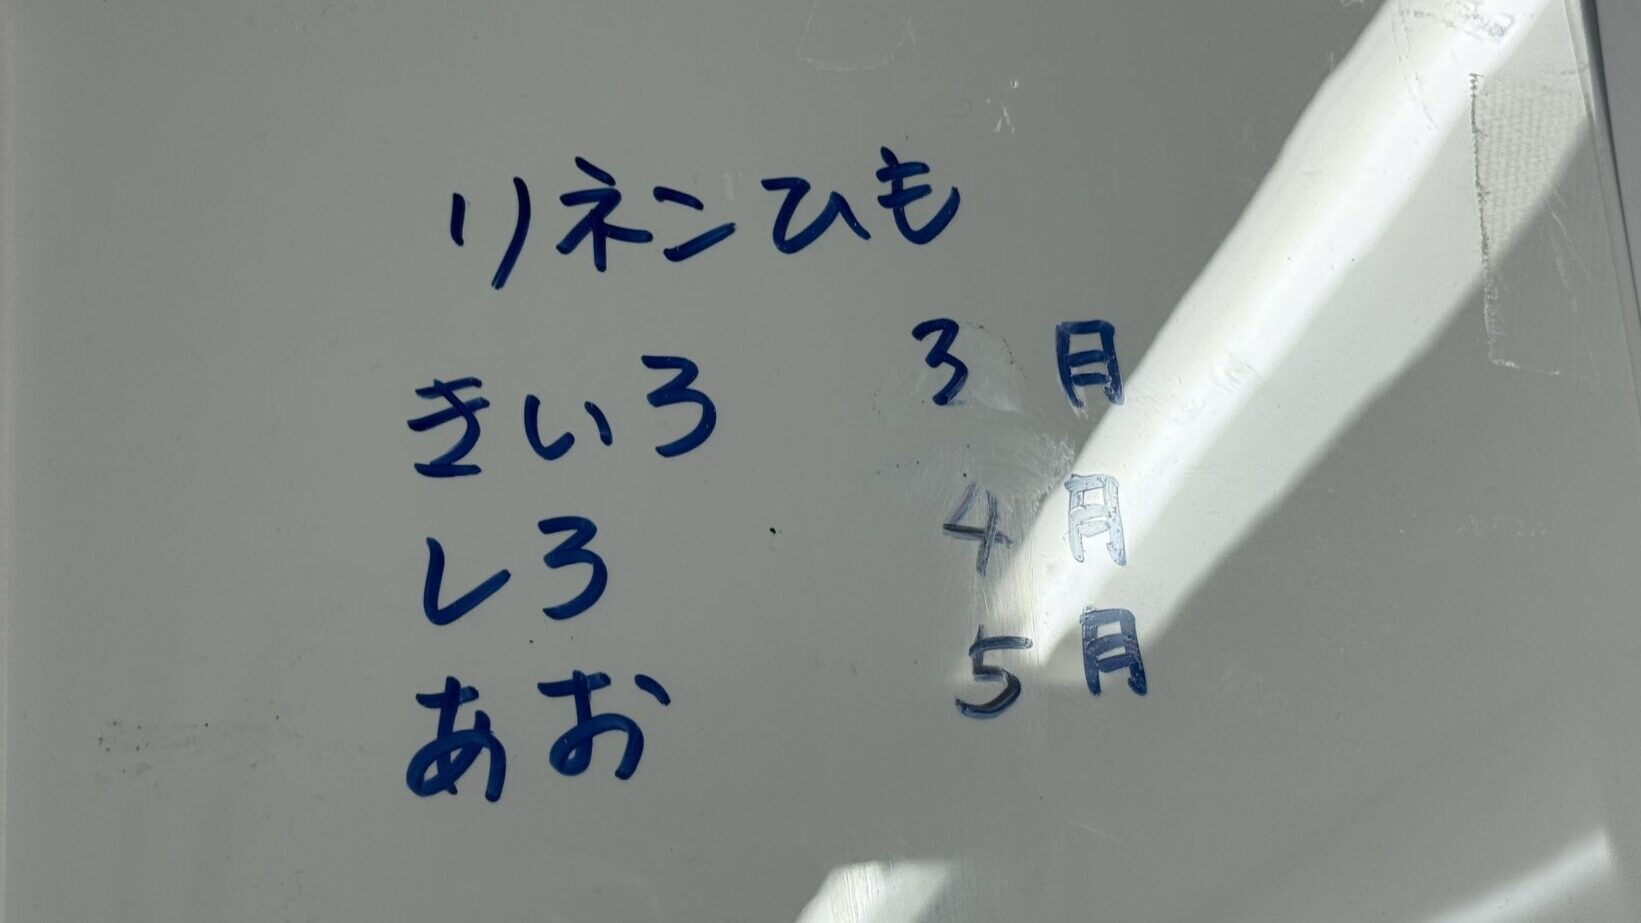 リネンひも
きいろ 3月
しろ 4月
あお 5月